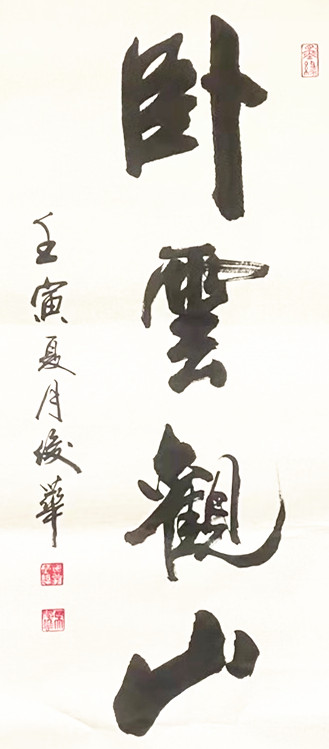 卧雲觀山
壬寅夏月俊華